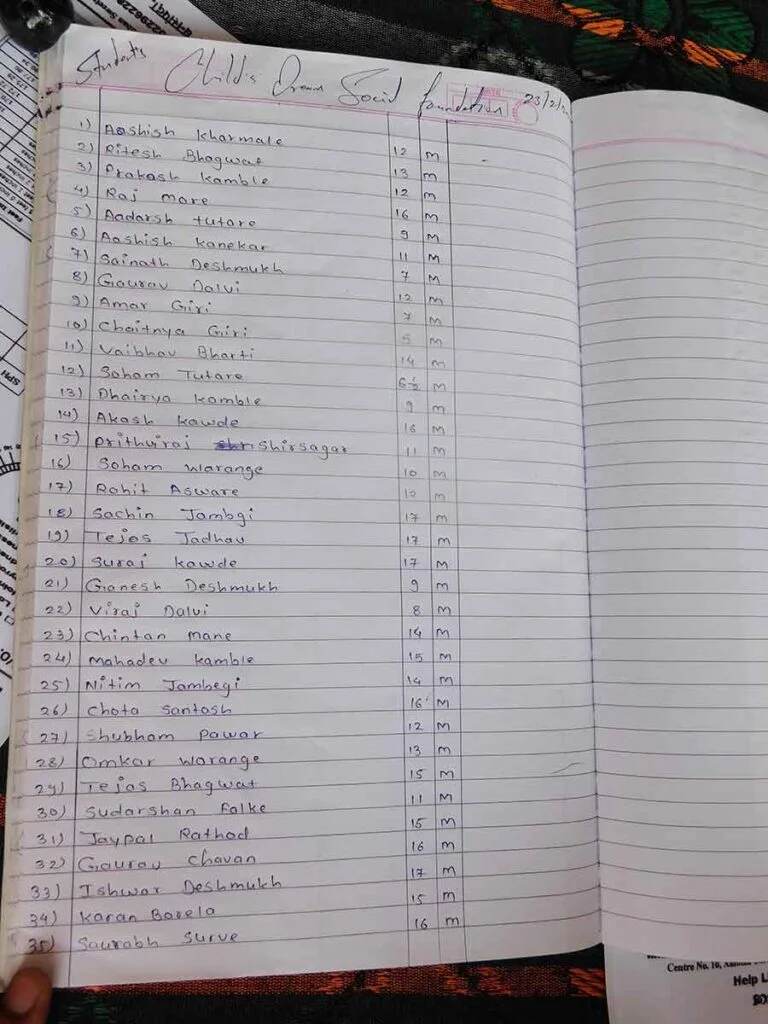 Students Child's Dream Social Foundation 23/2/
1) Aashish Kharmale 12 M
2) Ritesh Bhagwat 13 M
3) Prakash Kamble 12 M
4) Raj more 16 M
5) Aadarsh Tutare 9 M
6) Aashish Kanekar 11 M
7) Sainath Deshmukh 7 M
8) Gaurav Dalvi 12 M
9) Amar Giri 7 M
10) Chaitnya Giri 5 M
11) Vaibhav Bharti 14 M
12) Soham Tutare 6½ M
13) Dhairya Kamble 9 M
14) Akash Kawde 16 M
15) Prithviraj Shirsagar 11 M
16) Soham Warange 10 M
17) Rohit Asware 12 M
18) Sachin Jambgi 17 M
19) Tejas Jadhav 17 M
20) Suraj Kawde 17 M
21) Ganesh Deshmukh 9 M
22) Viraj Dalvi 8 M
23) Chintan Mane 14 M
24) Mahadev Kamble 15 M
25) Nitim Jambegi 14 M
26) Chota Santosh 16 M
27) Shubham Pawar 12 M
28) Omkar Warange 13 M
29) Tejas Bhagwat 15 M
30) Sudarshan Falke 11 M
31) Jaypal Rathod 15 M
32) Gaurav Chavan 16 M
33) Ishwar Deshmukh 17 M
34) Karan Barela 15 M
35) Saurabh Surve 16 M
Centre No. 16,
Help L